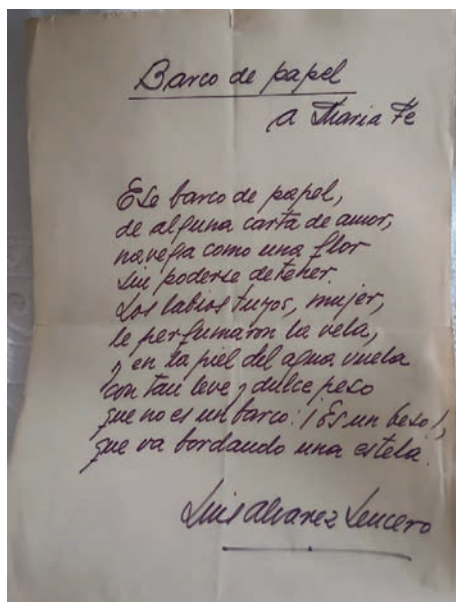 Barco de papel
a Maria Fe
Ese barco de papel,
de alguna carta de amor,
navega como una flor
sin poderse detener.
Los labios tuyos, mujer,
le perfumaron la vela,
y en la piel del agua vuela
con tan leve y dulce peso
que no es un barco: ¡Es un beso!,
que va bordando una estela.
Luis Alvarez Lencero